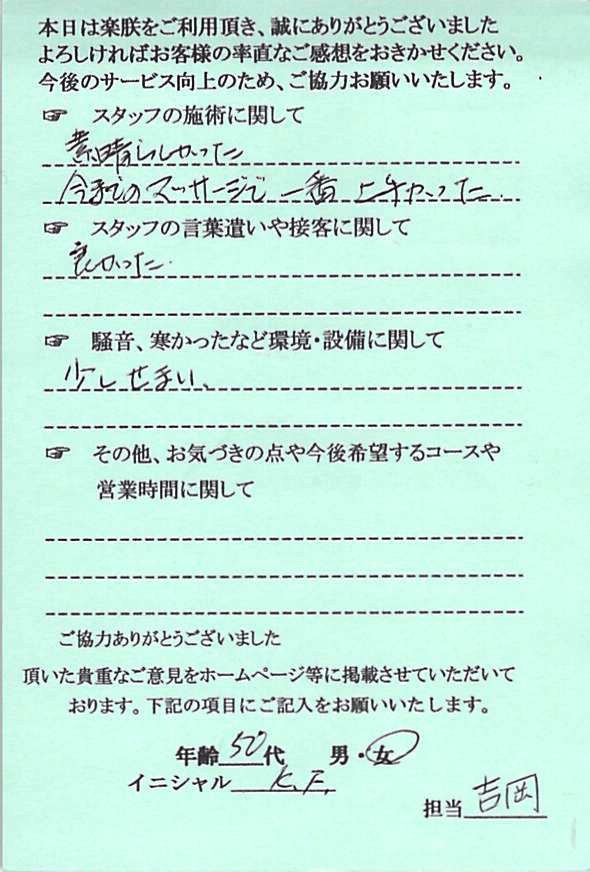 本日は楽朕をご利用頂き、誠にありがとうございました
よろしければお客様の率直なご感想をおきかせください。
今後のサービス向上のため、ご協力お願いいたします。
☞ スタッフの施術に関して
素晴らしかった
今までのマッサージで一番上手かった.
☞ スタッフの言葉遣いや接客に関して
良かった.
☞ 騒音、寒かったなど環境・設備に関して
少しせまい、
☞ その他、お気づきの点や今後希望するコースや
営業時間に関して
ご協力ありがとうございました
頂いた貴重なご意見をホームページ等に掲載させていただいて
おります。下記の項目にご記入をお願いいたします。
年齢 50代 男・女
イニシャル K.F.
担当 吉岡